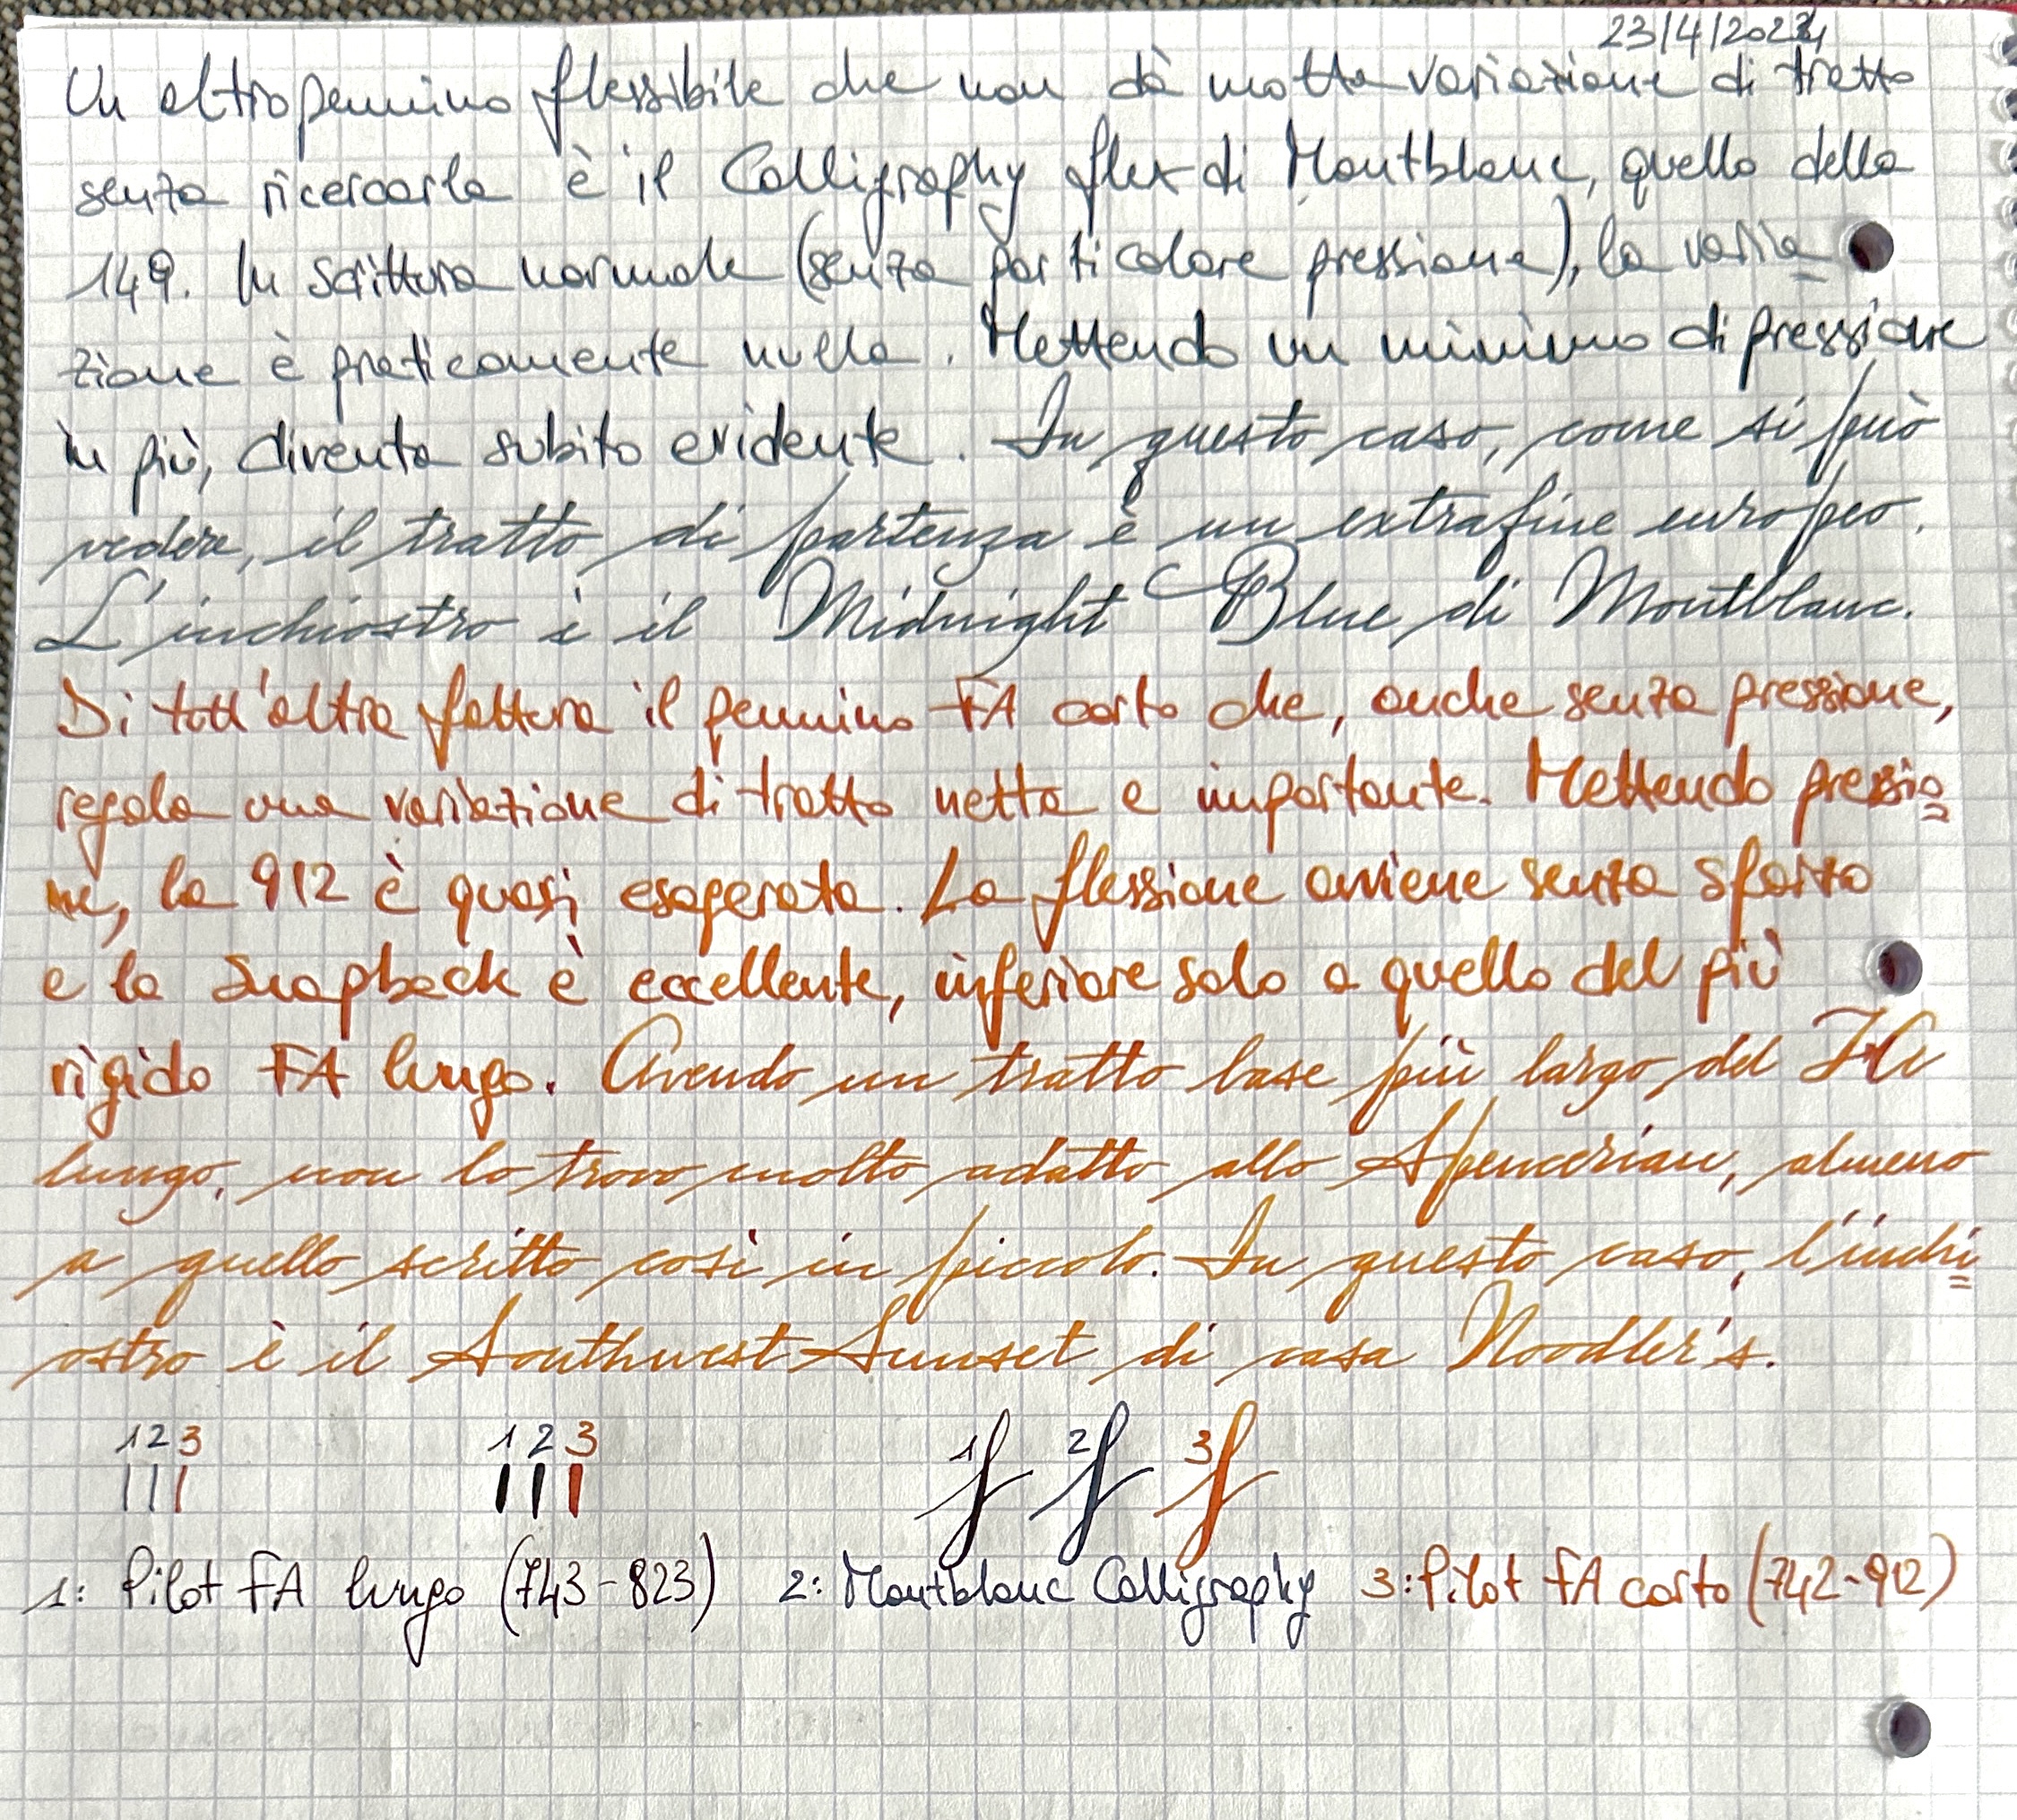 23/4/2024
Un altro pennino flessibile che non dà molta variazione di tratto
senza ricercarla è il Calligraphy flex di Montblanc, quello della
149. In scrittura normale (senza particolare pressione), la varia=
zione è praticamente nulla. Mettendo un minimo di pressione
in più, diventa subito evidente. In questo caso, come si può
vedere, il tratto di partenza è un extrafine europeo.
L'inchiostro è il Midnight Blue di Montblanc.
Di tutt'altra fattura il pennino FA corto che, anche senza pressione,
regala una variazione di tratto netta e importante. Mettendo pressio=
ne, la 912 è quasi esagerata. La flessione avviene senza sforzo
e lo snapback è eccellente, inferiore solo a quello del più
rigido FA lungo. Avendo un tratto base più largo del FA
lungo, non lo trovo molto adatto allo Spencerian, almeno
a quello scritto così in piccolo. In questo caso, l'inchi=
ostro è il Southwest Sunset di casa Noodler's.
1 2 3 1 2 3 1 f 2 f 3 f
1: Pilot FA lungo (743-823) 2: Montblanc Calligraphy 3: Pilot FA corto (742-912)